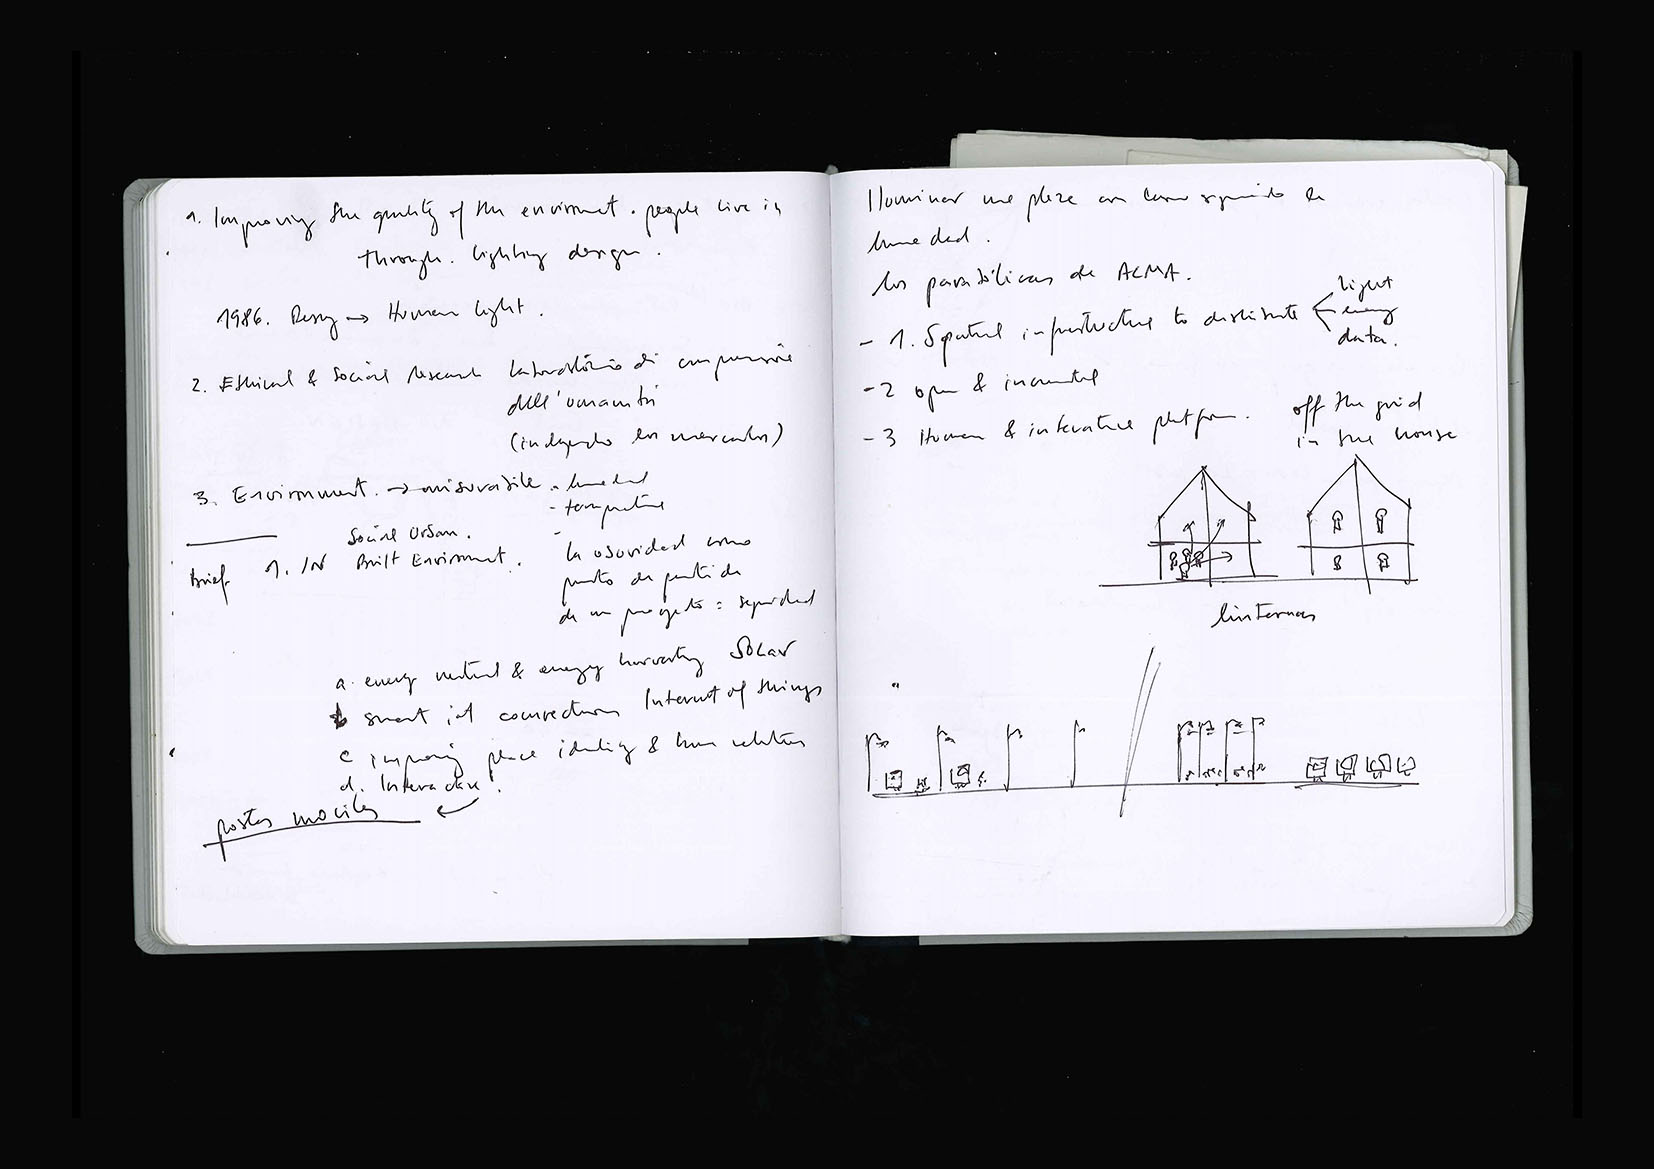 1. Improving the quality of the enviroment. people live in
through. lighting design.
1986. → Human light.
2. Ethical & Social Research Laboratório di
dell'umanità
(indagando los mercados)
3. Environment. → misurabile
- humedad
- temperature
Social Urban.
Brief 1. IN Built Enviroment.
la oscuridad como
punto de partida
de un proyecto = seguridad
a. energy neutral & energy harvesting SOLAR
b smart iot connections Internet of things
c improving place identity & human relations
d. Interactive.
postes moviles
Iluminar una plaza con
humedad.
las parabólicas de ALMA.
- 1. Spatial infrastructure to distribute
light
energy
data.
- 2 open & incremental
- 3 Human & interactive platform.
off the grid
in the house
linternas